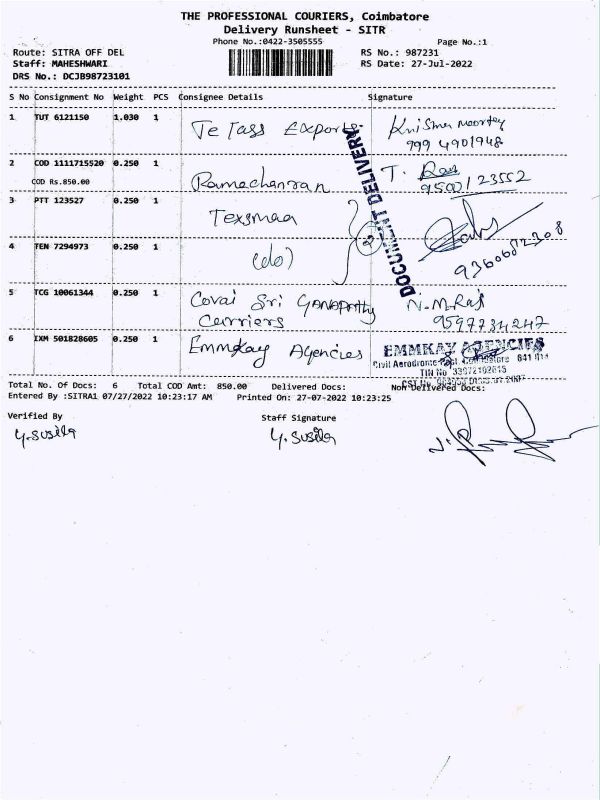 THE PROFESSIONAL COURIERS, Coimbatore
Delivery Runsheet - SITR
Phone No.:0422-3505555 Page No.:1
Route: SITRA OFF DEL RS No.: 987231
Staff: MAHESHWARI RS Date: 27-Jul-2022
DRS No.: DCJB98723101
S No Consignment No Weight PCS Consignee Details Signature
1 TUT 6121150 1.030 1 Te Tass Exports Krishna moortey
999 4901948
2 COD 1111715520 0.250 1 Ramachanran T.
COD Rs.850.00
3 PTT 123527 0.250 1 Texsmaa
DOCUMENT DELIVERY
4 TEN 7294973 0.250 1 (do) 2 9360682308
5 TCG 10061344 0.250 1 Covai Sri Ganapathy N.M.Raj
Carriers 9597734247
6 IXM 501828605 0.250 1 Emmkay Agencies EMMKAY AGENCIES
Civil Aerodrome Post, Coimbatore 641 014
TIN No
Total No. Of Docs: 6 Total COD Amt: 850.00 Delivered Docs: Non Delivered Docs:
Entered By :SITRA1 07/27/2022 10:23:17 AM Printed On: 27-07-2022 10:23:25
Verified By Staff Signature
y.susila y.susila